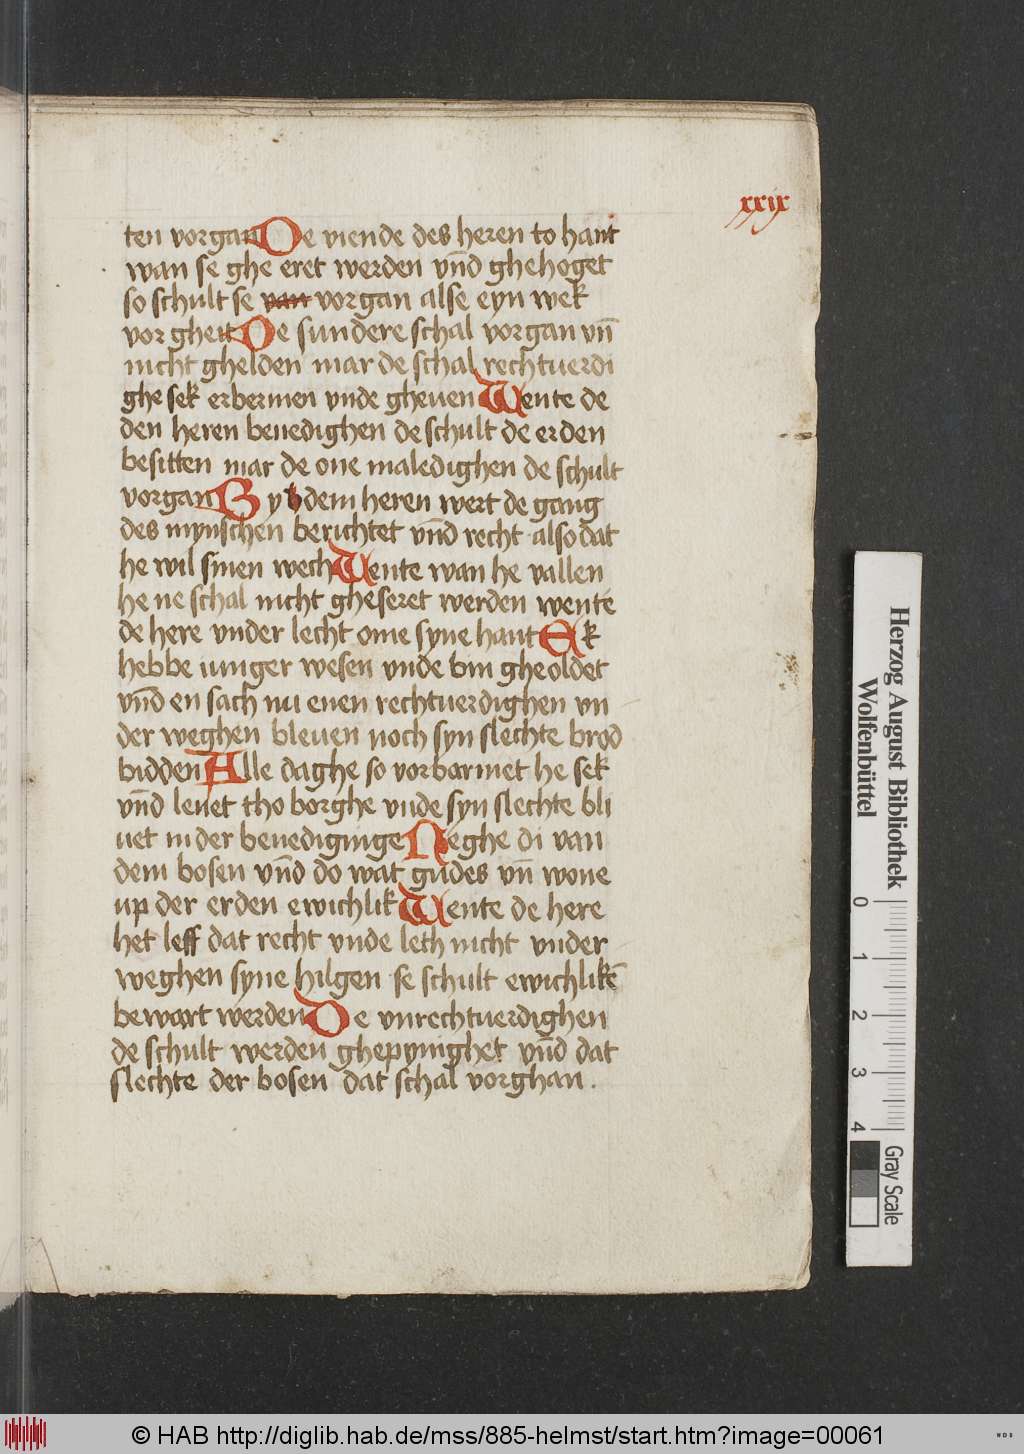 xxix
ten vorgan De viende des heren to hant
wan se ghe eret werden vn̄d ghehoget
so schult se van vorgan alse eyn wek
vor gheit De sundere schal vorgan vn̄
nicht ghelden mar de schal rechtuerdi
ghe sek erbermen vnde gheuen Wente de
den heren benedighen de schult de erden
besitten mar de one maledighen de schult
vorgan By dem heren wert de gang
des mynschen berichtet vn̄d recht also dat
he wil sinen wech Wente wan he vallen
he ne schal nicht gheseret werden wente
de here vnder lecht ome syne hant Ek
hebbe iunger wesen vnde bin gheoldet
vn̄d en sach nu enen rechtuerdighen vn
der weghen bleuen noch syn slechte brod
bidden Alle daghe so vorbarmet he sek
vn̄d lenet tho borghe vnde syn slechte bli
uet in der benediginge Neghe di van
dem bosen vn̄d do wat gudes vn̄ wone
up der erden ewichlik Wente de here
het leff dat recht vnde leth nicht vnder
weghen syne hilgen se schult ewichlikē
bewart werden De vnrechtuerdighen
de schult werden ghepynighet vn̄d dat
slechte der bosen dat schal vorghan .
Herzog August Bibliothek
Wolfenbüttel
0 1 2 3 4
Gray Scale
© HAB http://diglib.hab.de/mss/885-helmst/start.htm?image=00061
WDB